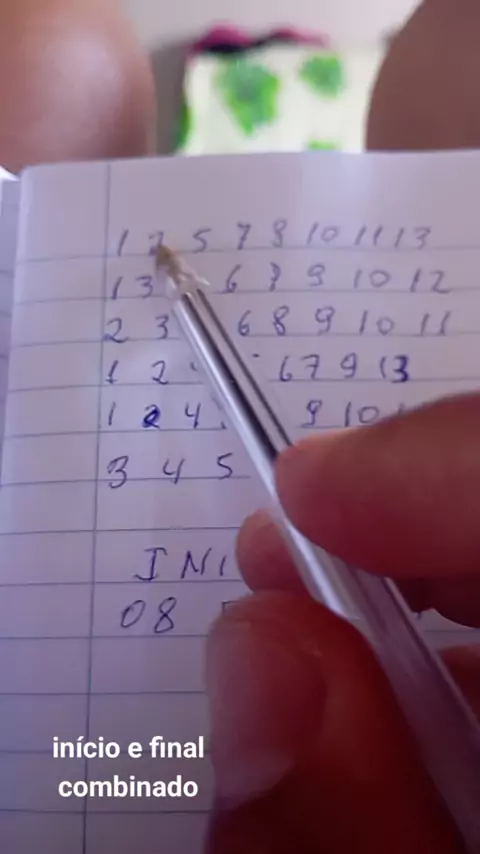 1 2 5 7 8 10 11 13
1 3 6 7 9 10 12
2 3 6 8 9 10 11
1 2 6 7 9 13
1 2 4 9 10
3 4 5
INI
08
início e final
combinado